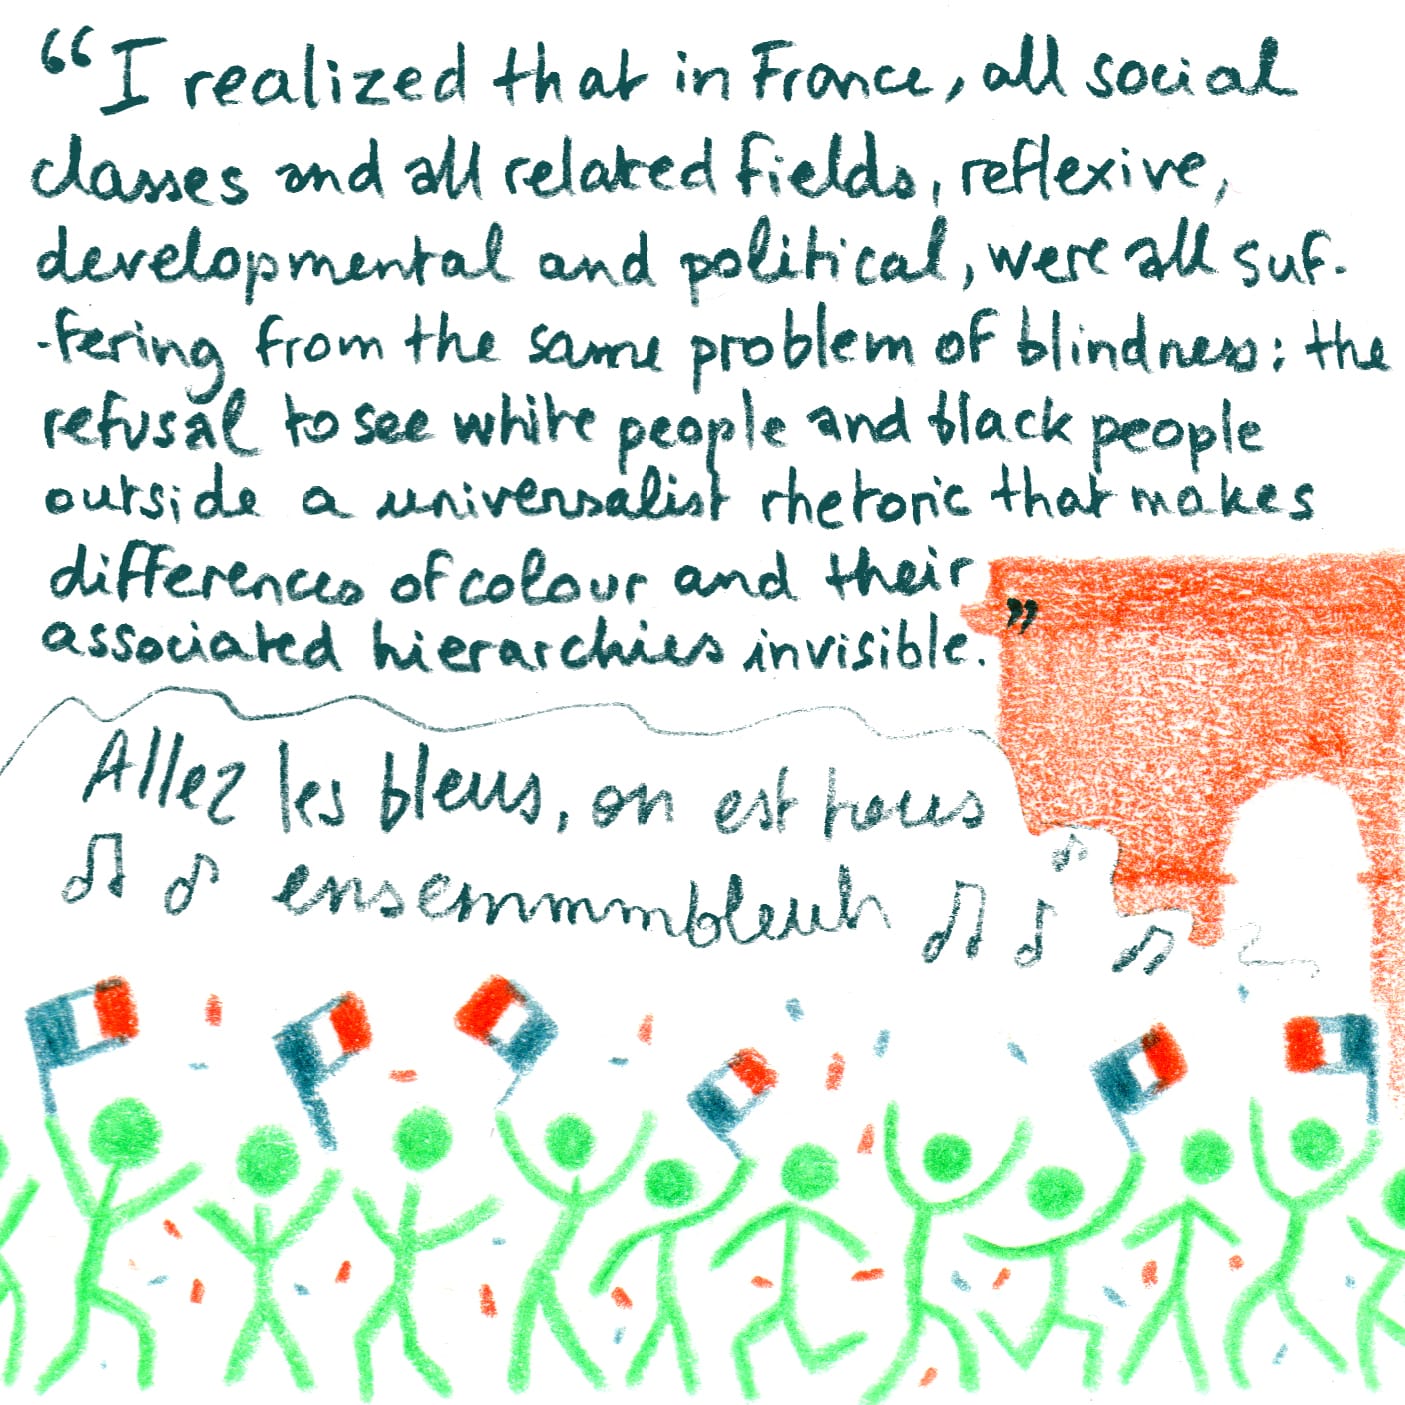 “I realized that in France, all social
classes and all related fields, reflexive,
developmental and political, were all suf-
-fering from the same problem of blindness: the
refusal to see white people and black people
outside a universalist rhetoric that makes
differences of colour and their
associated hierarchies invisible.”
Allez les bleus, on est tous
ensemmmbleuh